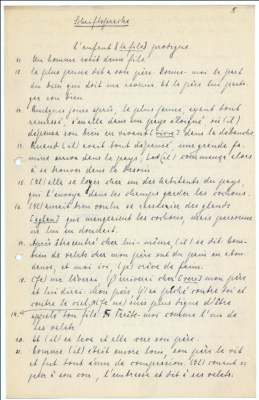 L'enfant (le fils) prodigue
11. Un homme avait deux fils
12. Le plus jeune dit à son père: Donne-moi la part
du bien qui doit me revenir. Et le père leur parta-
gea son bien.
13. Quelques jours après, le plus jeune, ayant tout
ramassé, s'en alla dans un pays éloigné, où (il)
dépensa son bien en vivant (vivre) dans la débauche.
14. Quand (il) avait tout dépensé, une grande fa-
mine arriva dans le pays, et (il) commença alors
à se trouver dans le besoin
15. (Il) alla se loger chez un des habitants du pays,
qui l'envoya dans les champs garder les cochons.
16. (Il) aurait bien voulu se rassasier des glands
que mangeaient les cochons, mais personne
ne lui en donnait.
17. Après être rentré chez lui-même, (il) se dit: Com-
bien de valets chez mon père ont du pain en abon-
dance, et moi ici, (je) crève de faim.
18. (Je) me lèverai, (j') arriverai chez (vers) mon père
et lui dirai: Mon père, (j') ai péché contre toi et
contre le ciel, (je) ne suis plus digne d'être
appelé ton fils. Traite-moi comme l'un de
tes valets.
20. Et (il) se leva et alla vers son père.
Comme (il) était encore loin, son père le vit
et fut ému de compassion. (Il) courut se
jeter à son cou, l'embrassa et dit à ses valets: